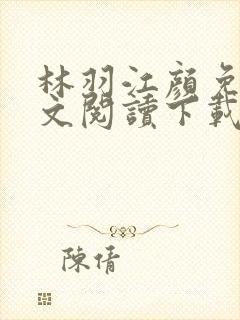 林羽江顏免
文閱讀下載
陳倩